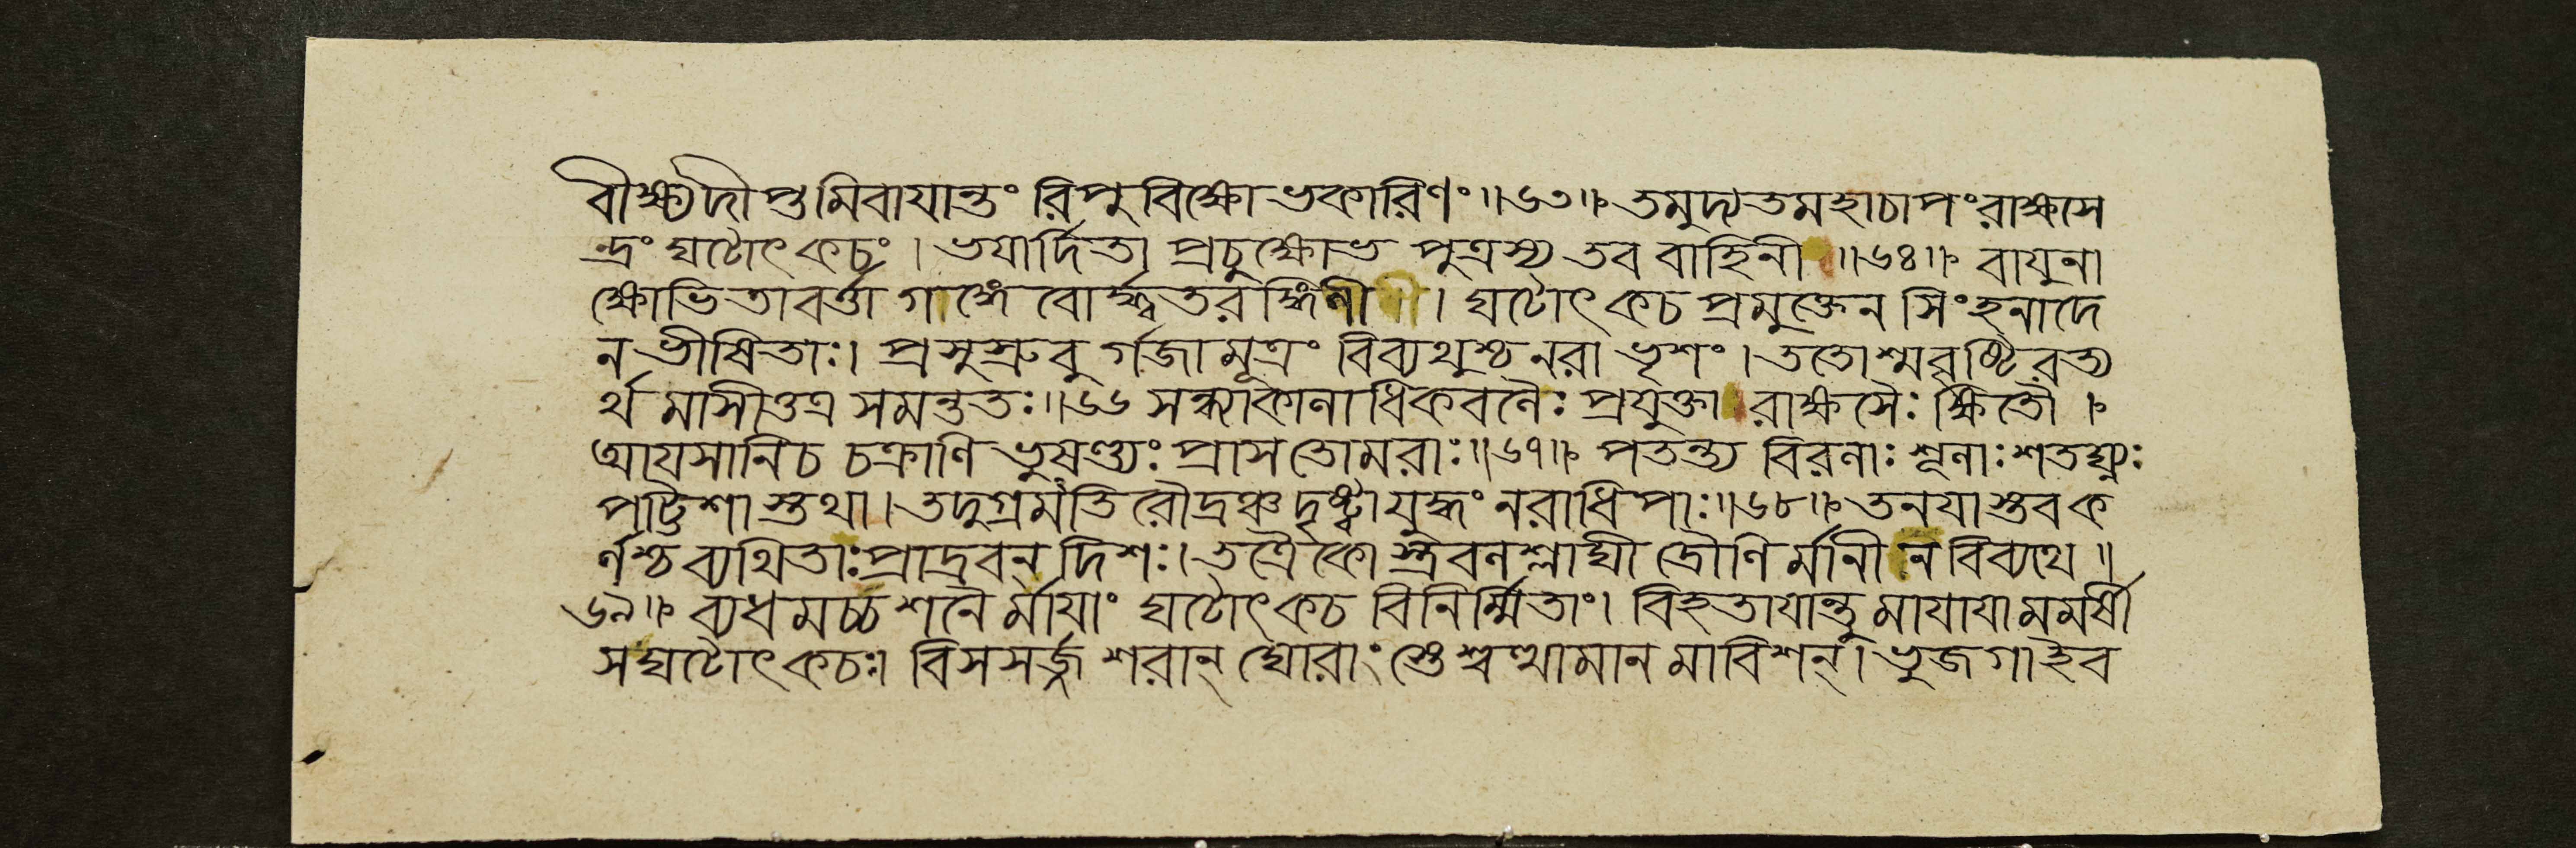 বীক্ষ্যদীপ্তমিবাযান্তং রিপুবিক্ষোভকারিণং॥৬৩॥ তমুদ্যতমহাচাপং রাক্ষসে
ন্দ্রং ঘটোৎকচং। ভযার্দিতা প্রচুক্ষোভ পুত্রস্য তব বাহিনী॥৬৪॥ বাযুনা
ক্ষোভিতাবর্ত্তা গাঙ্গেবোর্দ্ধ্বতরঙ্গিণী। ঘটোৎকচ প্রমুক্তেন সিংহনাদে
ন ভীষিতাঃ। প্রসুস্রুবুর্গজামূত্রং বিব্যথুশ্চ নরা ভৃশং। ততোশ্মবৃষ্টিরত্য
র্থমাসীত্তত্র সমন্ততঃ॥৬৬ সন্ধ্যাকালাধিকবলৈঃ প্রযুক্তা রাক্ষসৈঃ ক্ষিতৌ।
আযসানিচ চক্রাণি ভুষণ্ড্যঃ প্রাসতোমরাঃ॥৬৭॥ পতন্ত্য বিরলাঃ শূলাঃ শতঘ্ন্যঃ
পট্টিশাস্তথা। তদুগ্রমতিরৌদ্রঞ্চ দৃষ্ট্বাযুদ্ধং নরাধিপাঃ॥৬৮॥ তনযাস্তব ক
র্ণশ্চ ব্যথিতাঃ প্রাদ্রবন্ দিশঃ। তত্রৈকোস্ত্রবলশ্লাঘী দ্রৌণির্মানী ন বিব্যথে॥
৬৯॥ ব্যধমচ্চ শনৈর্মাযাং ঘটোৎকচ বিনির্ম্মিতাং। বিহতাযান্তু মাযাযামমর্ষী
সঘটোৎকচঃ। বিসসর্জ্জ শরান্ ঘোরাংস্তেশ্বত্থামানমাবিশন্। ভুজগাইব